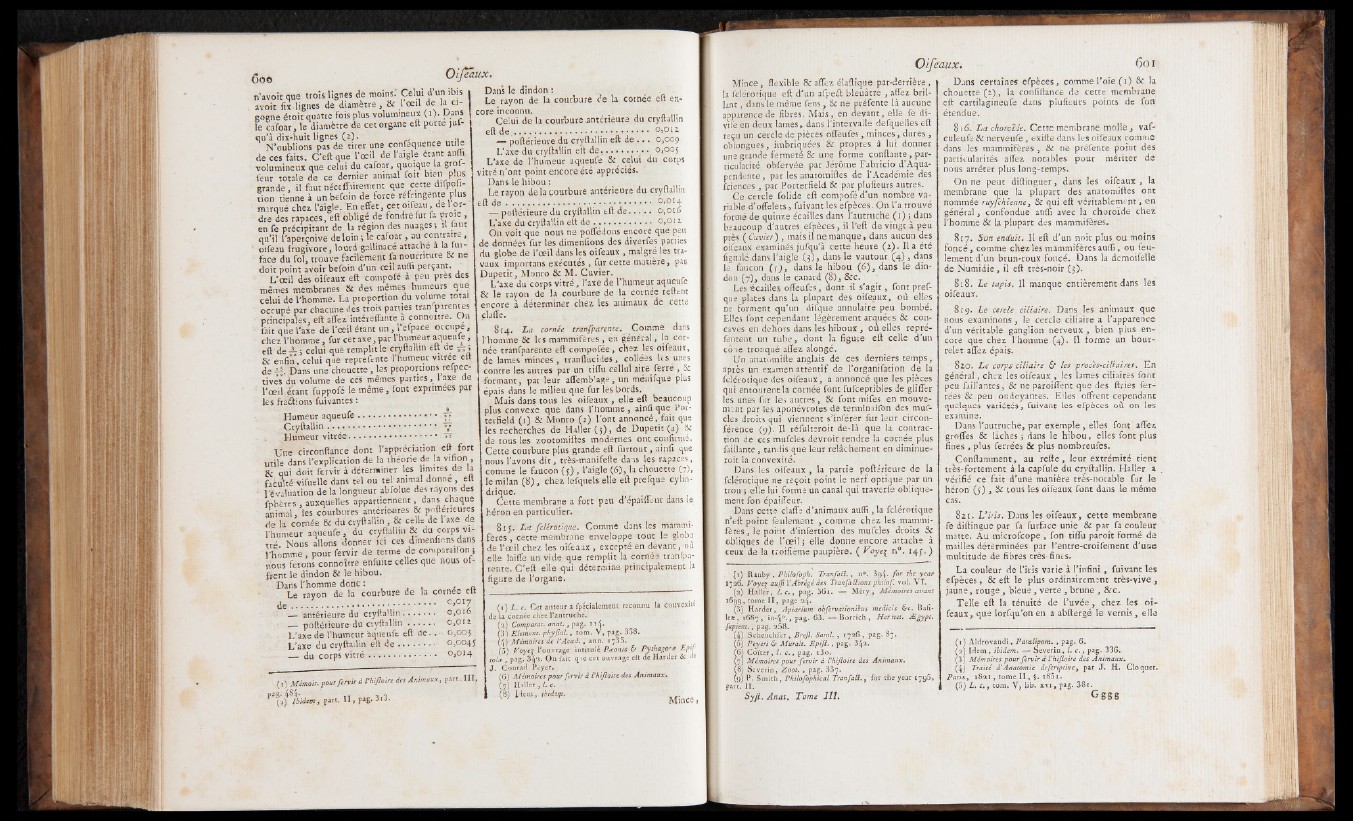 600
Oiseaux.
n'avoit que trois lignes de moins. Celui d'un ibis
avoit six lignes de diamètre, & l'œil de la ci-
gogne étoit quatre fois plus volumineux (1). Dans
le casoar, le diamètre de cet organe est porté jus-
qu'à dix-huit lignes (2).
N'oublions pas de tirer une conséquence utile
de ces faits. C'est que l'œil de l'aigle étant aussi
volumineux que celui du casoar, quoique la gros-
seur totale de ce dernier animal soit bien plus
grande, il faut nécessairement que cette disposi-
tion tienne à un besoin de force réfringente plus
marqué chez l'aigle. En effet, cet oiseau, de l'or-
dre des rapaces, est obligé de fondre sur sa proie,
en se précipitant de la région des nuages; il faut
qu'il l'aperçoive de loin; le casoar, au contraire,
oiseau frugivore, lourd gallinacé attaché à la sur-
face du sol, trouve facilement sa nourriture & ne
doit point avoir besoin d'un œil aussi perçant.
L'œil des oiseaux est composé à peu près des
mêmes membranes & des mêmes humeurs que
celui de l'homme. La proportion du volume total
occupé par chacune des trois parties transparentes
principales, est assez intéressante à connoître. On
sait que l'axe de l'œil étant un, l'espace occupé,
chez l'homme, sur cet axe, par l'humeur aqueuse,
est de ; celui que remplit le crystallin est de ;
& enfin, celui que représente l'humeur vitrée est
de . Dans une chouette, les proportions respec-
tives du volume de ces mêmes parties, l'axe de
l'œil étant supposé le même, sont exprimées par
les fractions suivantes :
Humeur aqueuse
Crystallin
Humeur vitrée
Une circonstance dont l'appréciation est fort
utile dans l'explication de la théorie de la vision,
& qui doit servir à déterminer les limites de la
faculté visuelle dans tel ou tel animal donné, est
l'évaluation de la longueur absolue des rayons des
sphères, auxquelles appartiennent, dans chaque
animal, les courbures antérieures & postérieures
de la cornée & du crystallin, & celle de l'axe de
l'humeur aqueuse, du crystallin & du corps vi-
tré. Nous allons donner ici ces dimensions dans
l'homme, pour servir de terme de comparaison;
nous ferons connoître ensuite celles que nous of-
frent le dindon & le hibou.
Dans l'homme donc :
Le rayon de la courbure de la cornée est
de ........ 0,017
— antérieure du crystallin ........ 0,016
— postérieure du crystallin ...... 0,012
L'axe de l'humeur aqueuse est de... 0,003
L'axe du crystallin est de ........ 0,0045
— du corps vitré ............ 0,014
(1) Mémoir. pour servir à l'histoire des Animaux, part. III,
pag. 484.
(2) Ibidem, part. II, pag. 313.
Dans le dindon :
Le rayon de la courbure de la cornée est en-
core inconnu.
Celui de la courbure antérieure du crystallin
est de ............ 0,012
— postérieure du crystallin est de ... 0,009
L'axe du crystallin est de.......... 0,005
L'axe de l'humeur aqueuse & celui du corps
vitré n'ont point encore été appréciés.
Dans le hibou :
Le rayon de la courbure antérieure du crystallin
est de ............ 0,014
— postérieure du crystallin est de..... 0,016
L'axe du crystallin est de ............ 0,012
On voit que nous ne possédons encore que peu
de données sur les dimensions des diverses parties
du globe de l'œil dans les oiseaux, malgré les tra-
vaux importans exécutés, sur cette matière, par
Dupetit, Monro & M. Cuvier.
L'axe du corps vitré, l'axe de l'humeur aqueuse
& le rayon de la courbure de la cornée restent
encore à déterminer chez les animaux de cette
classe.
814. La cornée transparente. Comme dans
l'homme & les mammifères, en général, la cor-
née transparente est composée, chez les oiseaux,
de lames minces, translucides, collées les unes
contre les autres par un tissu cellulaire serré, &
formant, par leur assemblage, un ménisque plus
épais dans le milieu que sur les bords.
Mais dans tous les oiseaux, elle est beaucoup
plus convexe que dans l'homme, ainsi que Por-
terfield (1) & Monro (2) l'ont annoncé, fait que
les recherches de Haller (3), de Dupetit (4) &
de tous les zootomistes modernes ont confirmé.
Cette courbure plus grande est surtout, ainsi que
nous l'avons dit, très-manifeste dans les rapaces,
comme le faucon (5), l'aigle (6), la chouette (7),
le milan (8), chez lesquels elle est presque cylin-
drique.
Cette membrane a fort peu d'épaisseur dans le
héron en particulier.
815. La sclérotique. Comme dans les mammi-
fères, cette membrane enveloppe tout le globe
de l'œil chez les oiseaux, excepté en devant, où
elle laisse un vide que remplit la cornée transpa-
rente. C'est elle qui détermine principalement la
figure de l'organe.
(1) L. c. Cet auteur a spécialement reconnu la convexité
de la cornée chez l'autruche.
(2) Comparat. anat., pag. 114.
(3) Elemen. physiol., tom. V, pag. 338.
(4) Mémoires de l'Acad., ann. 1736.
(5) Voyez l'ouvrage intitulé Pæonis & Pythagoræ Epis-
tolæ, pag. 342. On sait que cet ouvrage est de Harder & de
J. Conrad Peyer.
(6) Mémoires pour servir à l'histoire des Animaux.
(7) Haller, l. c.
(8) Idem, ibidem.
Mince,
Oiseaux.
601
Mince, flexible & assez élastique par-derrière,
la sclérotique est d'un aspect bleuâtre, assez bril-
lant, dans le même sens, & ne présente là aucune
apparence de fibres. Mais, en devant, elle se di-
vise en deux lames, dans l'intervalle desquelles est
reçu un cercle de pièces osseuses, minces, dures,
oblongues, imbriquées & propres à lui donner
une grande fermeté & une forme constante, par-
ticularité observée par Jérôme Fabricio d'Aqua-
pendente, par les anatomistes de l'Académie des
sciences, par Porterfield & par plusieurs autres.
Ce cercle solide est composé d'un nombre va-
riable d'osselets, suivant les espèces. On l'a trouvé
formé de quinze écailles dans l'autruche (1); dans
beaucoup d'autres espèces, il l'est de vingt à peu
près (Cuvier), mais il ne manque, dans aucun des
oiseaux examinés jusqu'à cette heure (2). Il a été
signalé dans l'aigle (3), dans le vautour (4), dans
le faucon (5), dans le hibou (6), dans le din-
don (7), dans le canard (8), &c.
Les écailles osseuses, dont il s'agit, sont pres-
que plates dans la plupart des oiseaux, où elles
ne forment qu'un disque annulaire peu bombé.
Elles sont cependant légèrement arquées & con-
caves en dehors dans les hiboux, où elles repré-
sentent un tube, dont la figure est celle d'un
cône tronqué assez alongé.
Un anatomiste anglais de ces derniers temps,
après un examen attentif de l'organisation de la
sclérotique des oiseaux, a annoncé que les pièces
qui entourent la cornée sont susceptibles de glisser
les unes sur les autres, & sont mises en mouve-
ment par les aponévroses de terminaison des mus-
cles droits qui viennent s'insérer sur leur circon-
férence (9). Il résulteroit de-là que la contrac-
tion de ces muscles devroit rendre la cornée plus
saillante, tandis que leur relâchement en diminue-
roit la convexité.
Dans les oiseaux, la partie postérieure de la
sclérotique ne reçoit point le nerf optique par un
trou; elle lui forme un canal qui traverse oblique-
ment son épaisseur.
Dans cette classe d'animaux aussi, la sclérotique
n'est point seulement, comme chez les mammi-
fères, le point d'insertion des muscles droits &
obliques de l'œil; elle donne encore attache à
ceux de la troisième paupière. (Voyez n°. 145.)
(1) Ranby, Philosoph. Transact., n°. 394. for the year
1726. Voyez aussi l'Abrégé des Transactions philos. vol. VI.
(2) Haller, l. c., pag. 361. — Méry, Mémoires avant
1699, tome II, page 24.
(3) Harder, Apiarium observationibus medicis &c. Basi-
leæ, 1687, in-4°., pag. 63. — Borrich, Hermet. Ægypt.
sapient., pag. 268.
(4) Scheuchfer, Bresl. Saml., 1726, pag. 87.
(5) Peyeri & Murait. Epist., pag. 342.
(6) Coiter, l. c., pag. 130.
(7) Mémoires pour servir à l'histoire des Animaux.
(8) Severin, Zoot., pag. 337.
(9) P. Smith, Philosophical Transact., for the year 1796,
part. II.
Syst. Anat. Tome III.
Dans certaines espèces, comme l'oie (1) & la
chouette (2), la consistance de cette membrane
est cartilagineuse dans plusieurs points de son
étendue.
816. La choroïde. Cette membrane molle, vas-
culeuse & nerveuse, existe dans les oiseaux comme
dans les mammifères, & ne présente point des
particularités assez notables pour mériter de
nous arrêter plus long-temps.
On ne peut distinguer, dans les oiseaux, la
membrane que la plupart des anatomistes ont
nommée ruyschienne, & qui est véritablement, en
général, confondue aussi avec la choroïde chez
l'homme & la plupart des mammifères.
817. Son enduit. Il est d'un noir plus ou moins
foncé, comme chez les mammifères aussi, ou seu-
lement d'un brun-roux foncé. Dans la demoiselle
de Numidie, il est très-noir (3).
818. Le tapis. Il manque entièrement dans les
oiseaux.
819. Le cercle ciliaire. Dans les animaux que
nous examinons, le cercle ciliaire a l'apparence
d'un véritable ganglion nerveux, bien plus en-
core que chez l'homme (4). Il forme un bour-
relet assez épais.
820. Le corps ciliaire & les procès-ciliaires. En
général, chez les oiseaux, les lames ciliaires sont
peu saillantes, & ne paroissent que des stries ser-
rées & peu ondoyantes. Elles offrent cependant
quelques variétés, suivant les espèces où on les
examine.
Dans l'autruche, par exemple, elles sont assez
grosses & lâches; dans le hibou, elles sont plus
fines, plus serrées & plus nombreuses.
Constamment, au reste, leur extrémité tient
très-fortement à la capsule du crystallin. Haller a
vérifié ce fait d'une manière très-notable sur le
héron (5), & tous les oiseaux sont dans le même
cas.
821. L'iris. Dans les oiseaux, cette membrane
se distingue par sa surface unie & par sa couleur
matte. Au microscope, son tissu paroît formé de
mailles déterminées par l'entre-croisement d'une
multitude de fibres très-fines.
La couleur de l'iris varie à l'infini, suivant les
espèces, & est le plus ordinairement très-vive,
jaune, rouge, bleue, verte, brune, &c.
Telle est la ténuité de l'uvée, chez les oi-
seaux, que lorsqu'on en a abstergé le vernis, elle
(1) Aldrovandi, Paralipom., pag. 6.
(2) Idem, ibidem. — Severin, l. c., pag. 336.
(3) Mémoires pour servir à l'histoire des Animaux.
(4) Traité d'Anatomie descriptive, par J. H. Cloquet.
Paris, 1821, tome II, §. 1851.
(5) L. c., tom. V, lib. XVI, pag. 381.
Gggg